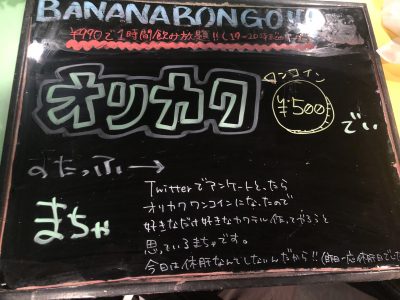 BANANABONGO
¥990で1時間飲み放題!!
オリカク
ワンコイン
¥500
でい
すたっふ→
まちゃ
Twitterでアンケートとったら
オリカクワンコインになったので
好きなだけ好きなカクテル作ってやろうと
思っているまちゃです。
今日は休肝なんてしないんだから!!